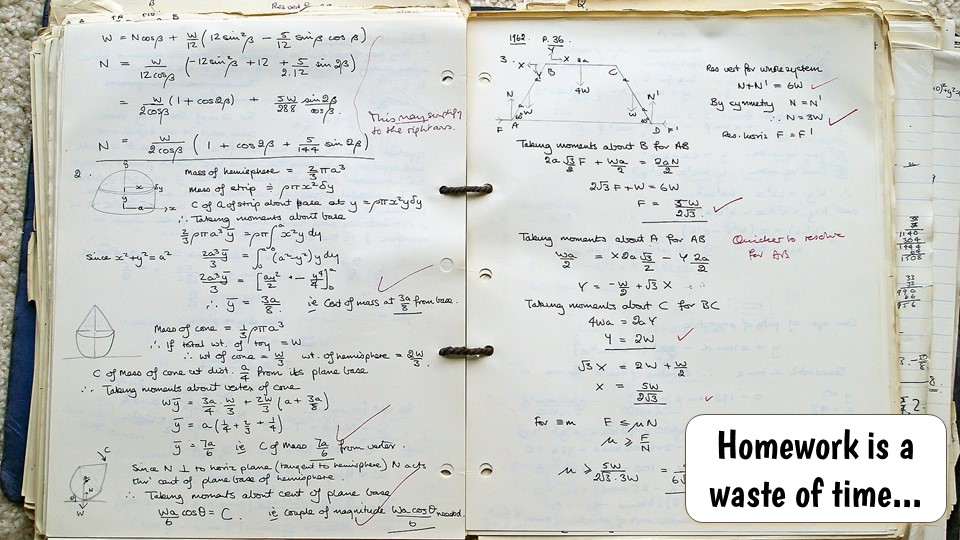 W = Ncosβ + W/12 (12sin²β - 5/12 sinβ cosβ)
N = W/12cosβ (-12sin²β + 12 + 5/2.12 sin2β)
= W/2cosβ (1 + cos2β) + 5W/288 sin2β/cosβ.
This may simplify
to the right ans.
N = W/2cosβ (1 + cos2β + 5/144 sin2β)
2.
Mass of hemisphere = 2/3 πa³
Mass of strip ≡ ρπx²δy
C of A of strip about base at y = ρπx²yδy
∴ Taking moments about base
2/3 ρπa³ȳ = ρπ∫x²y dy
Since x²+y²=a²
2a³ȳ/3 = ∫(a²-y²)y dy
∴ ȳ = 3a/8. ie Cest of mass at 3a/8 from base.
Mass of cone = 1/3 ρπa³
∴ If total wt. of toy = W
∴ wt of cone = W/3 wt. of hemisphere = 2W/3.
C of Mass of cone at dist. a/4 from its plane base
∴ Taking moments about vertex of cone
Wȳ = 3a/4 . W/3 + 2W/3 (a + 3a/8)
ȳ = a(1/4 + 2/3 + 1/4)
ȳ = 7a/6 ie C of mass 7a/6 from vertex.
Since N ⊥ to horiz plane (tangent to hemisphere) N acts
thro' cent of plane base of hemisphere.
∴ Taking moments about cent of plane base
Wa/6 cosθ = C. ie couple of magnitude Wa cosθ/6 needed.
1962 P. 36.
3.
Y
X
X
2a
B
C
4W
N
N'
W
W
F
A
D
F'
60°
Res vert for whole system
N+N' = 6W
By symmetry N = N'
∴ N = 3W
Res. horiz F = F'
Taking moments about B for AB
2a √3/2 F + Wa/2 = 2aN/2
2√3 F + W = 6W
F = 5W/2√3.
Taking moments about A for AB
Quicker to resolve
for AB
Wa/2 = X2a√3/2 - Y 2a/2
Y = -W/2 + √3 X
Taking moments about C for BC
4Wa = 2aY
Y = 2W
√3 X = 2W + W/2
X = 5W/2√3
For ≡m F ≤ μN
μ ≥ F/N
μ ≥ 5W/2√3 . 3W =
Homework is a
waste of time...